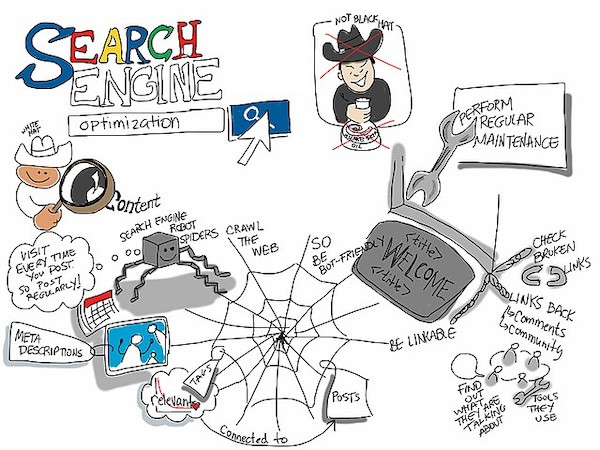 SEARCH
ENGINE
optimization
NOT BLACK HAT
OIL
PERFORM
REGULAR
MAINTENANCE
WHITE
HAT
Content
SEARCH ENGINE
ROBOT
SPIDERS CRAWL
THE
WEB
SO
BE
BOT-FRIENDLY
<title>
WELCOME
</title>
CHECK
BROKEN
LINKS
VISIT
EVERY TIME
YOU POST
SO POST
REGULARLY!
LINKS BACK
Comments
Community
BE LINKABLE
META
DESCRIPTIONS
TAGS
relevant
POSTS
Connected to
FIND
OUT
WHAT
THEY ARE
TALKING
ABOUT
TOOLS
THEY
USE